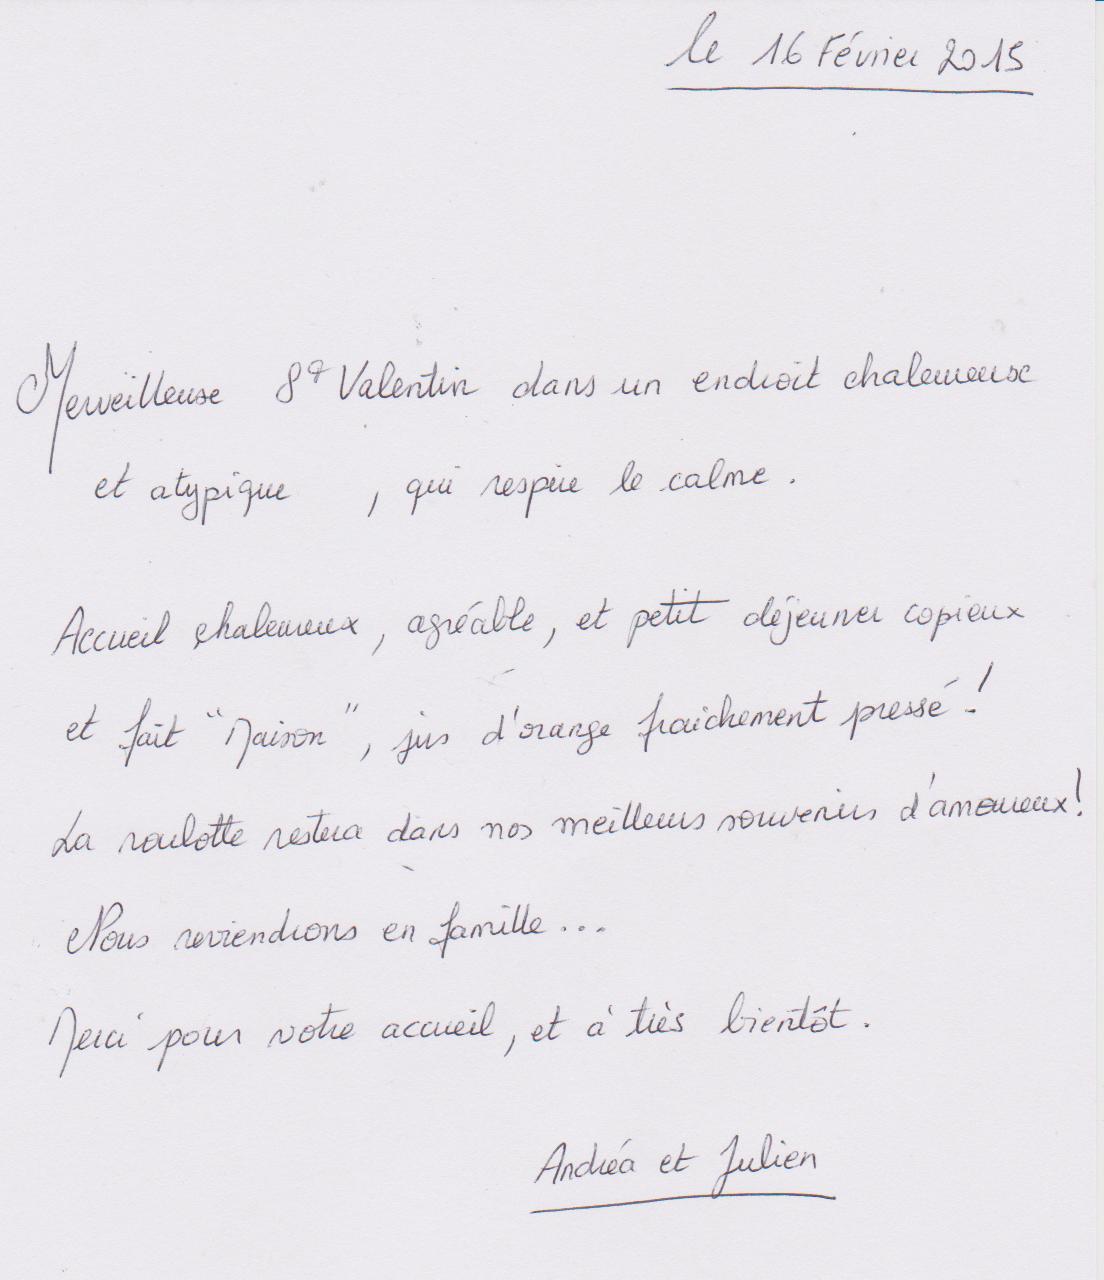 le 16 Février 2015
Merveilleuse St Valentin dans un endroit chaleureux
et atypique , qui respire le calme.
Accueil chaleureux, agréable, et petit déjeuner copieux
et fait "Maison", jus d'orange fraichement pressé !
La roulotte restera dans nos meilleurs souvenirs d'amoureux!
Nous reviendrons en famille...
Merci pour votre accueil, et à très bientôt.
Andréa et Julien